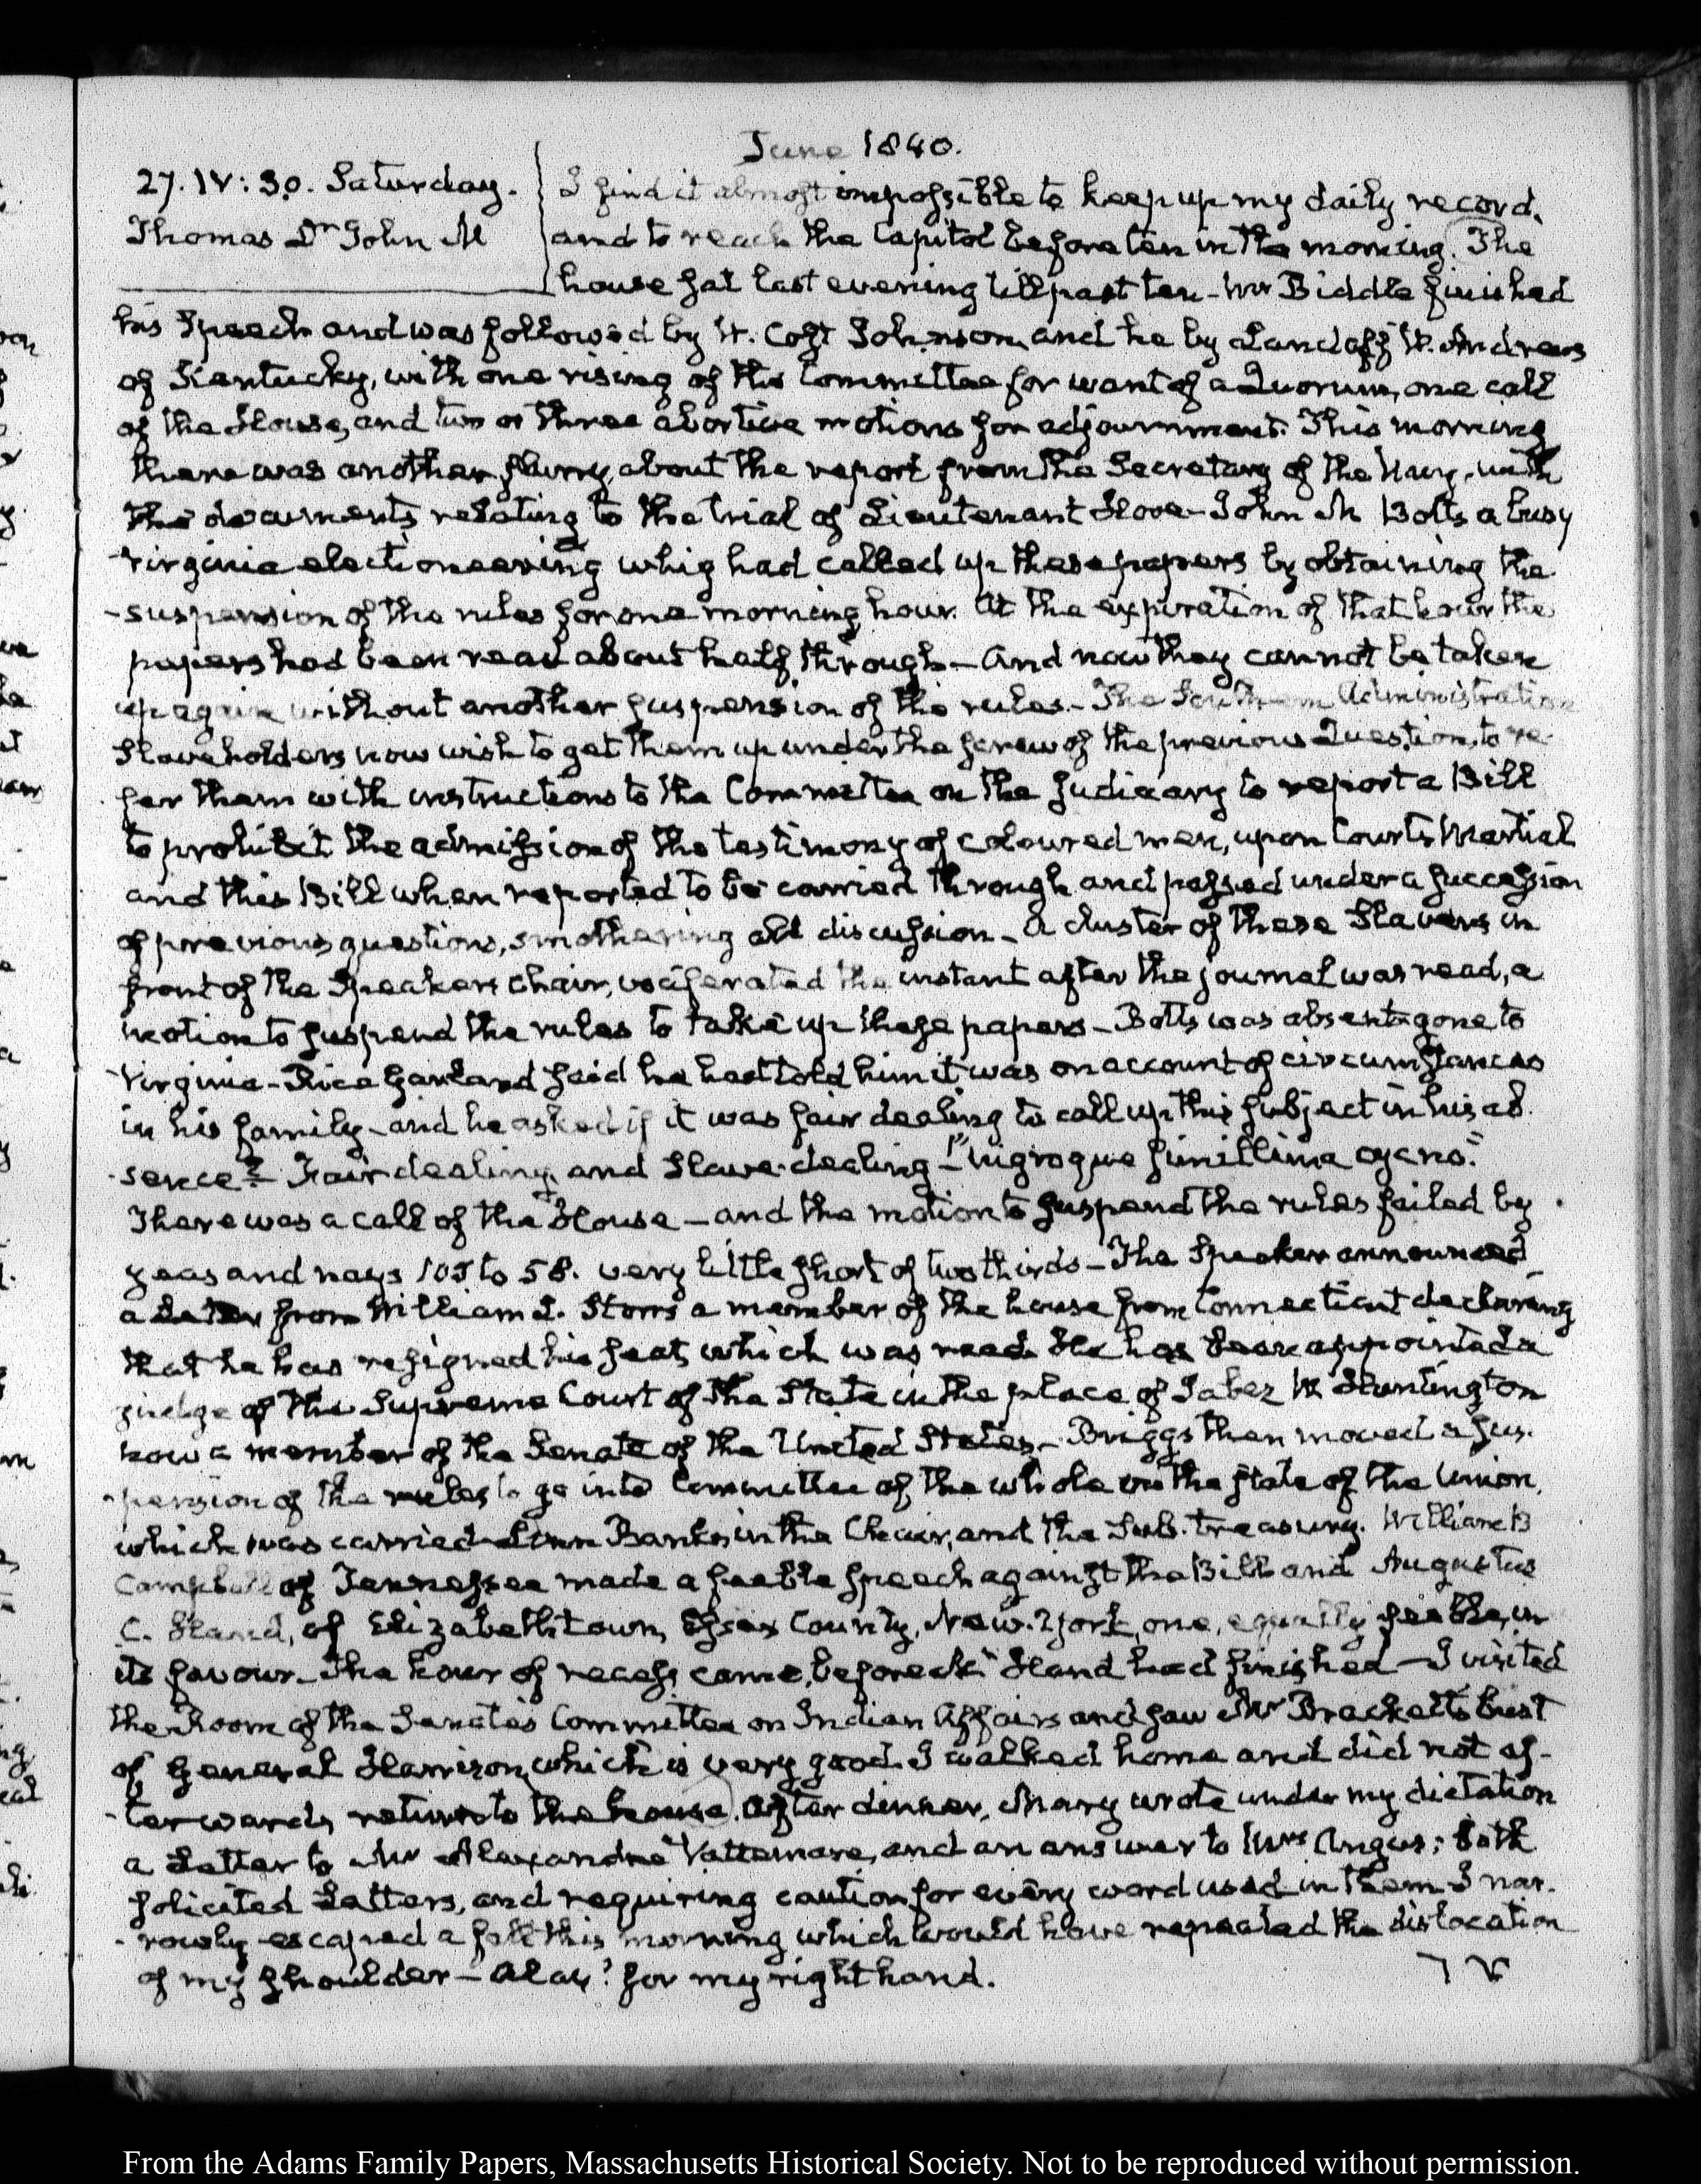 June 1840.
27. IV: 30. Saturday.
Thomas Dr John M
I find it almost impossible to keep up my daily record,
and to reach the Capitol before ten in the morning. The
house sat last evening till past ten - Mr Biddle finished
his Speech and was followed by W. Cost Johnson, and he by Landaff W. Andrews
of Kentucky, with one rising of the Committee for want of a Quorum, one call
of the House, and two or three abortive motions for adjournment. This morning
there was another flurry, about the report from the Secretary of the Navy, with
the documents relating to the trial of Lieutenant Hooe - John M Botts a busy
Virginia electioneering whig had called up these papers by obtaining the
-suspension of the rules for one morning hour. At the expiration of that hour the
papers had been read about half through - And now they cannot be taken
up again without another suspension of the rules. - The Southern Administration
Slaveholders now wish to get them up under the screw of the previous Question, to re-
fer them with instructions to the Committee on the Judiciary to report a Bill
to prohibit the admission of the testimony of coloured men, upon Courts Martial
and this Bill when reported to be carried through and passed under a succession
of previous questions, smothering all discussion - A cluster of these Slavers in
front of the Speaker's chair, vociferated the instant after the journal was read, a
motion to suspend the rules to take up these papers - Botts was absent gone to
Virginia - Rice Garland said he had told him it was on account of circumstances
in his family - and he asked if it was fair dealing to call up this subject in his ab-
-sence? - Fair dealing, and Slave-dealing - "nigroque simillima cycno."
There was a call of the House - and the motion to suspend the rules failed by
yeas and nays 105 to 58. very little short of two thirds - The Speaker announced
a Letter from William L. Storrs a member of the house from Connecticut declaring
that he has resigned his seat, which was read. He has been appointed a
judge of the Supreme Court of the State in the place of Jabez W. Huntington
now a member of the Senate of the United States - Briggs then moved a sus-
-pension of the rules to go into Committee of the whole on the state of the Union,
which was carried - Linn Banks in the Chair, and the Sub. treasury. William B
Campbell of Tennessee made a feeble speech against the Bill and Augustus
C. Hand, of Elizabethtown, Essex County, New-York, one, equally feeble, in
its favour - The hour of recess came, before Hand had finished - I visited
the Room of the Senate's Committee on Indian Affairs and saw Mr Brackett's bust
of General Harrison, which is very good. I walked home and did not af-
-terwards return to the house. After dinner, Mary wrote under my dictation
a Letter to Mr Alexandre Vattemare, and an answer to Mrs Angus; both
solicited Letters, and requiring caution for every word used in them. I nar-
-rowly escaped a fall this morning which would have repeated the dislocation
of my shoulder - Alas! for my right hand.
From the Adams Family Papers, Massachusetts Historical Society. Not to be reproduced without permission.